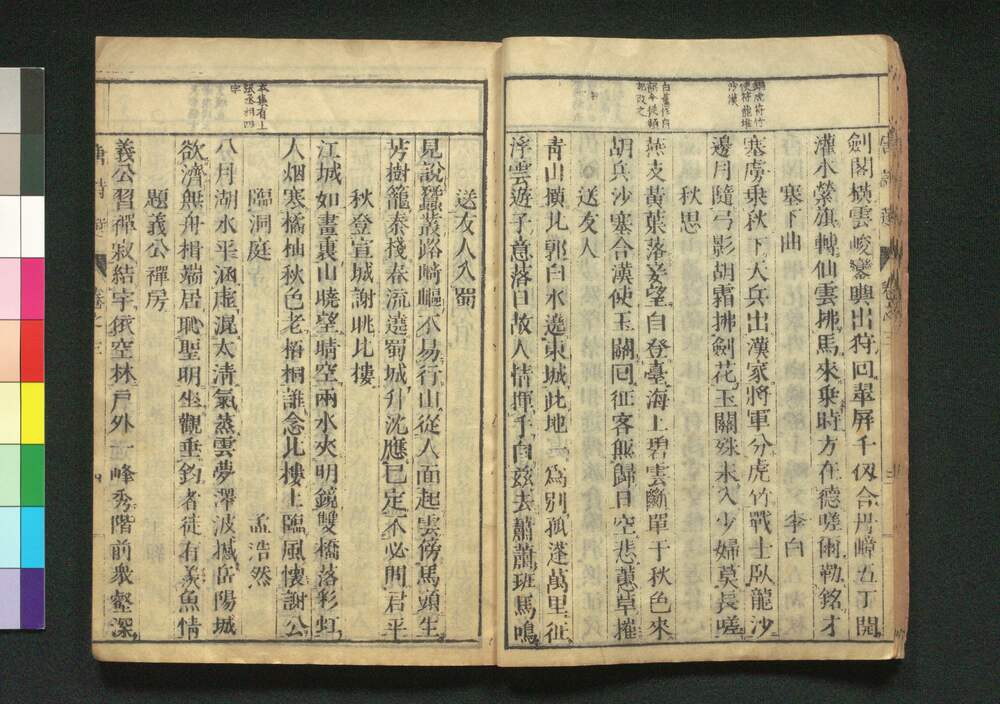 劍閣橫雲峻鑾輿出狩回翠屏千仭合丹嶂五丁開
灌木縈旗轉仙雲拂馬來乘時方在德嗟爾勒銘才
塞下曲 李白
塞虜乘秋下天兵出漢家將軍分虎竹戰士臥龍沙
邊月隨弓影胡霜拂劍花玉關殊未入少婦莫長嗟
秋思
燕支黃葉落妾望自登臺海上碧雲斷單于秋色來
胡兵沙塞合漢使玉關回征客無歸日空悲蕙草摧
送友人
青山橫北郭白水遶東城此地一爲別孤蓬萬里征
浮雲遊子意落日故人情揮手自兹去蕭蕭班馬鳴
送友人入蜀
見說蠶叢路崎嶇不易行山從人面起雲傍馬頭生
芳樹籠秦棧春流遶蜀城升沈應已定不必問君平
秋登宣城謝眺北樓
江城如畫裏山曉望晴空兩水夾明鏡雙橋落彩虹
人烟寒橘柚秋色老梧桐誰念北樓上臨風懷謝公
臨洞庭 孟浩然
本集有上
張丞相四
字
八月湖水平涵虛混太清氣蒸雲夢澤波撼岳陽城
欲濟無舟楫端居恥聖明坐觀垂釣者徒有羨魚情
題義公禪房
義公習禪寂結宇依空林戶外一峰秀階前衆壑深
唐詩選 卷之三 四